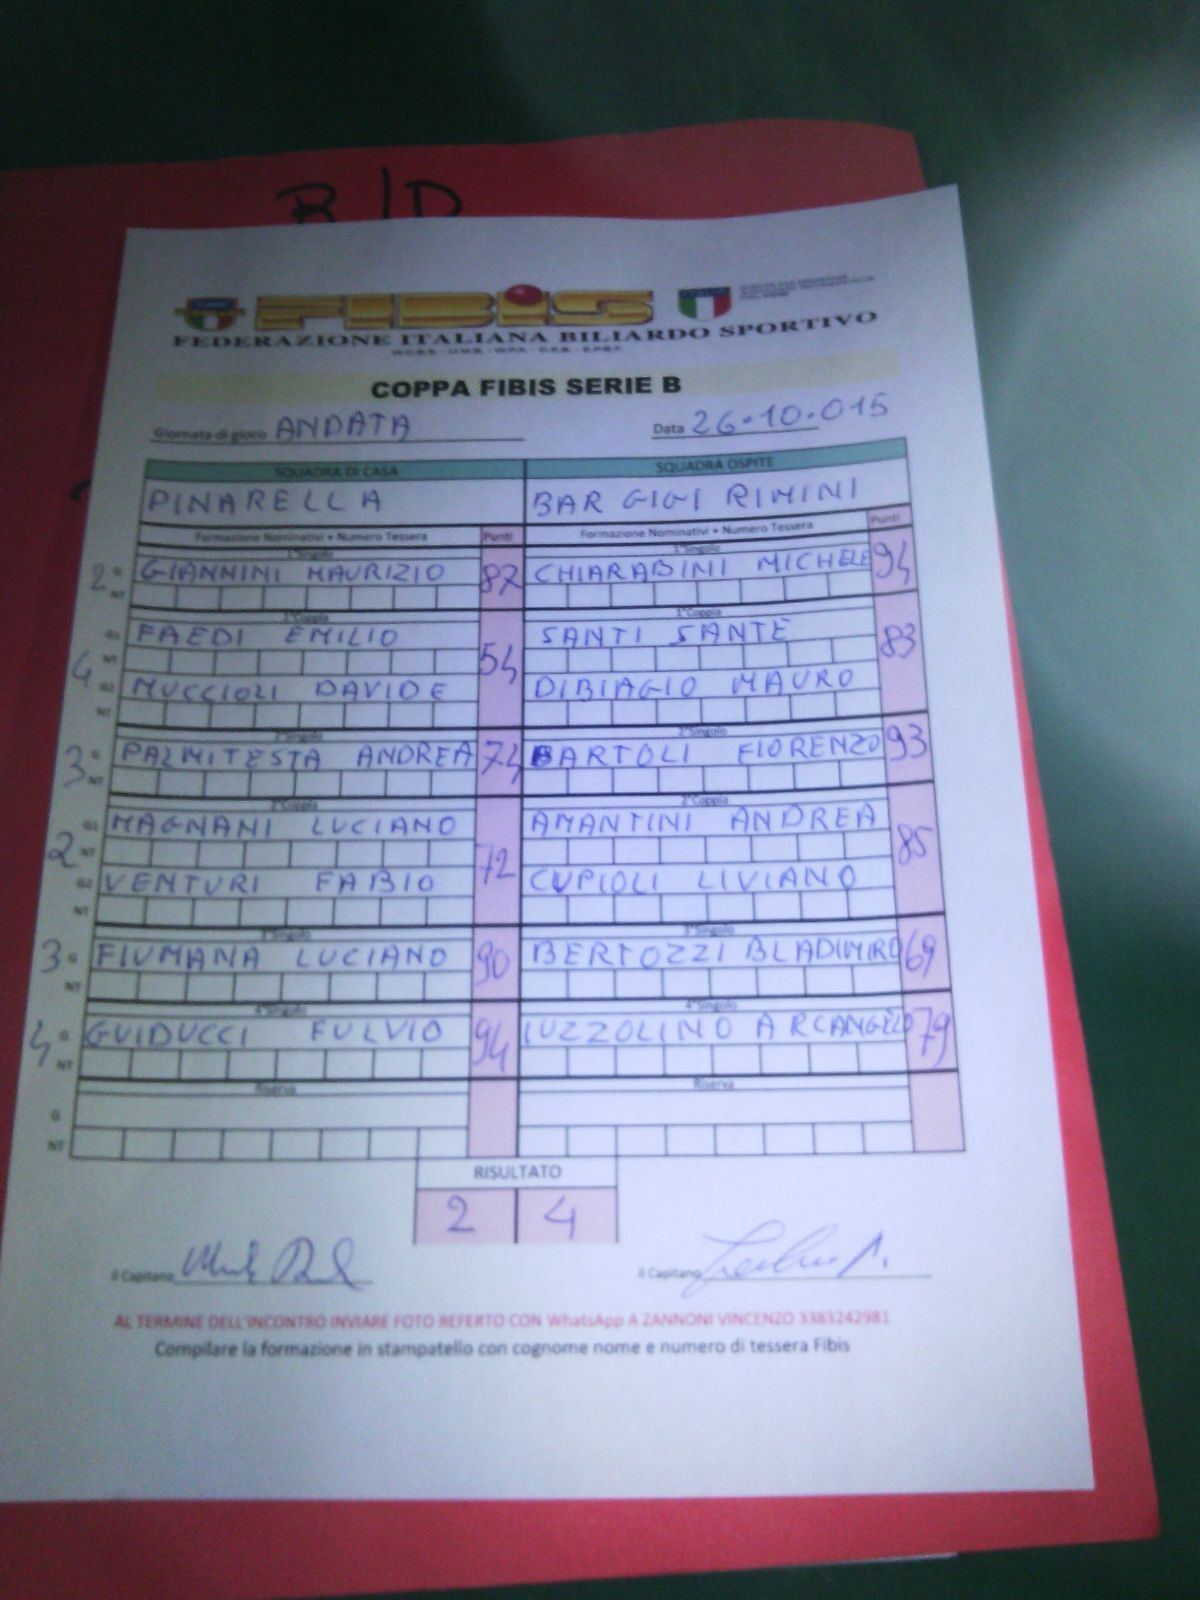 B/D
FIBIS
FEDERAZIONE ITALIANA BILIARDO SPORTIVO
COPPA FIBIS SERIE B
Giornata di gioco ANDATA Data 26.10.015
SQUADRA DI CASA SQUADRA OSPITE
PINARELLA BAR GIGI RIMINI
Formazione Nominativi + Numero Tessera Punti Formazione Nominativi + Numero Tessera Punti
1°Singolo 1°Singolo
2 G GIANNINI MAURIZIO 87 CHIARABINI MICHELE 94
NT
1°Coppia 1°Coppia
G1 FAEDI EMILIO SANTI SANTE
4 NT 54 83
G2 MUCCIOLI DAVIDE DIBIAGIO MAURO
NT
2°Singolo 2°Singolo
3 G PALMITESTA ANDREA 74 BARTOLI FIORENZO 93
NT
2°Coppia 2°Coppia
G1 MAGNANI LUCIANO AMANTINI ANDREA
2 NT 72 85
G2 VENTURI FABIO CUPIOLI LIVIANO
NT
3°Singolo 3°Singolo
3 G FIUMANA LUCIANO 90 BERTOZZI BLADIMIRO 69
NT
4°Singolo 4°Singolo
4 G GUIDUCCI FULVIO 94 IUZZOLINO ARCANGELO 79
NT
Riserva Riserva
G
NT
RISULTATO
2 4
il Capitano il Capitano
AL TERMINE DELL'INCONTRO INVIARE FOTO REFERTO CON WhatsApp A ZANNONI VINCENZO 3383242981
Compilare la formazione in stampatello con cognome nome e numero di tessera Fibis